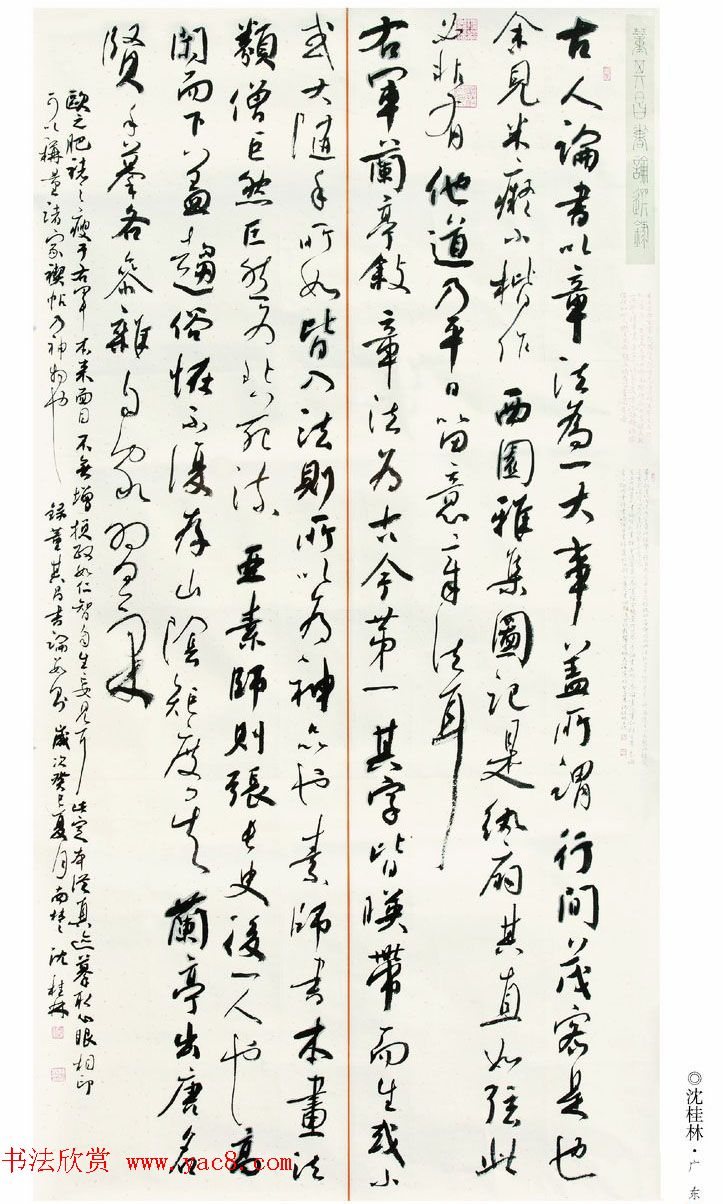 董其昌書論選錄
古人論書以章法為一大事蓋所謂行間茂密是也
余見米癡小楷作西園雅集圖記是紈扇其直如弦此
必非有他道乃平日留意章法耳
右軍蘭亭敘章法为古今第一其字皆映帶而生或小
或大隨手所如皆入法則所以为神品也素師書本畫法
類僧巨然巨然为北苑流亞素師則張長史後一人也高
閑而下益趨俗怪不復存山陰矩度矣蘭亭出唐名
賢手摹各參雜自家習氣
歐之肥褚之瘦于右軍本来面目不無增損政如仁智自生妄見耳此定本從真迹摹取心眼相印
可以稱量諸家禊帖乃神物也
錄董其昌書論數則歲次癸巳夏月南楚沈桂林
◎沈桂林·广东
书法欣赏 www.yac8.com